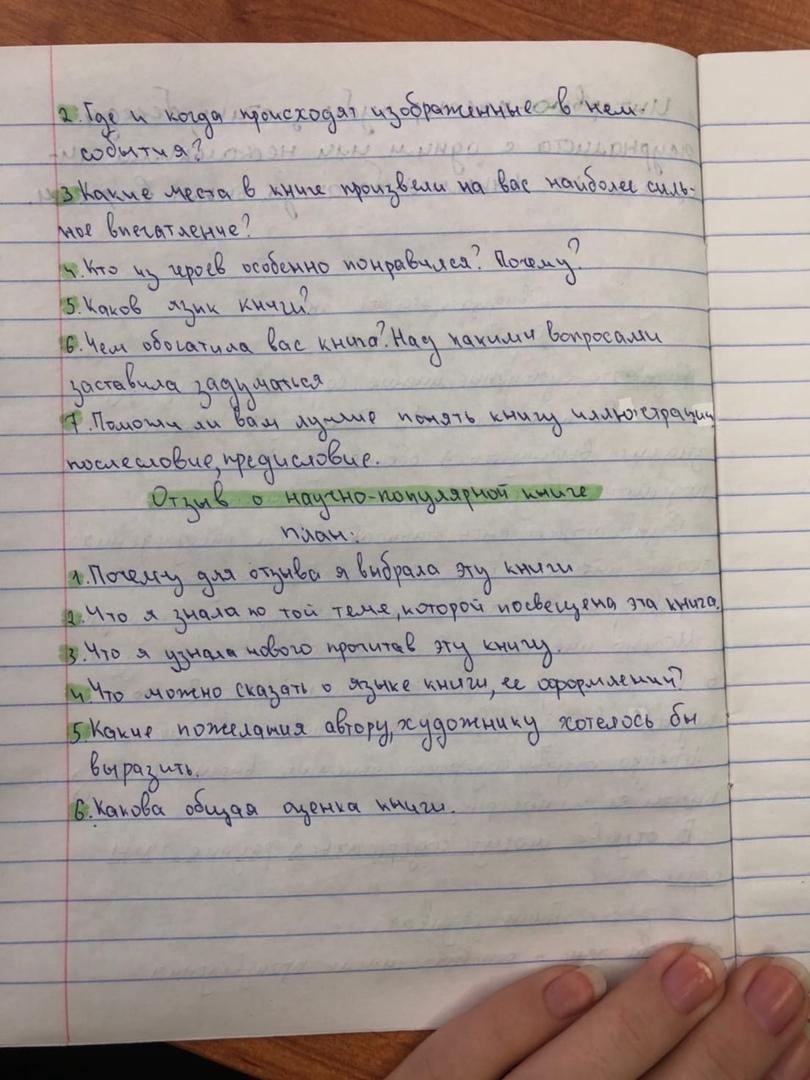 2. Где и когда происходят изображенные в нем
события?
3 Какие места в книге произвели на вас наиболее силь-
ное впечатление?
4. Кто из героев особенно понравился? Почему?
5. Каков язык книги?
6. Чем обогатила вас книга? Над какими вопросами
заставила задуматься
7. Помогли ли вам лучше понять книгу иллюстрации
послесловие, предисловие.
Отзыв о научно-популярной книге
План:
1. Почему для отзыва я выбрала эту книги
2. Что я знала по той теме, которой посвещена эта книга.
3. Что я узнала нового прочитав эту книгу.
4. Что можно сказать о языке книги, ее оформлении?
5. Какие пожелания автору, художнику хотелось бы
выразить.
6. Какова общая оценка книги.